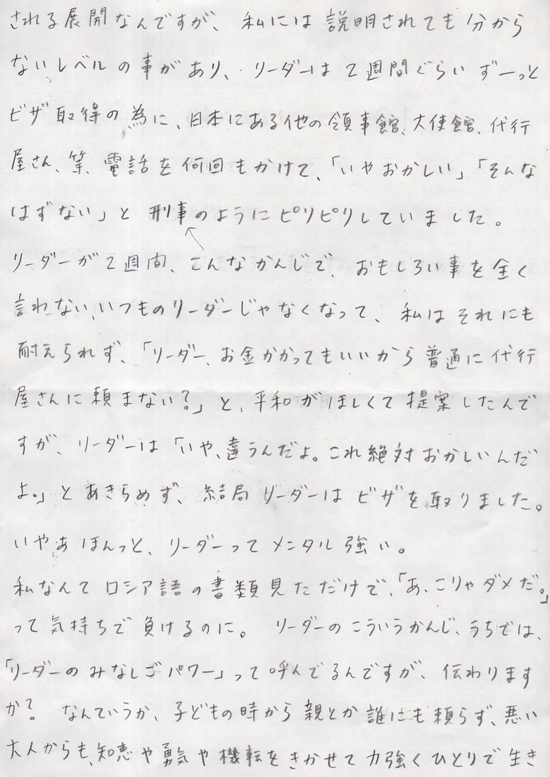 される展開なんですが、私には説明されても分から
ないレベルの事があり、リーダーは2週間ぐらいずーっと
ビザ取得の為に、日本にある他の領事館、大使館、代行
屋さん、等、電話を何回もかけて、「いやおかしい」「そんな
はずない」と刑事のようにピリピリしていました。
リーダーが2週間、こんなかんじで、おもしろい事を全く
言れない、いつものリーダーじゃなくなって、私はそれにも
耐えられず、「リーダー、お金かかってもいいから普通に代行
屋さんに頼まない?」と、平和がほしくて提案したんで
すが、リーダーは「いや、違うんだよ。これ絶対おかしいんだ
よ。」とあきらめず、結局リーダーはビザを取りました。
いやあほんっと、リーダーってメンタル強い。
私なんてロシア語の書類見ただけで、「あ、こりゃダメだ。」
って気持ちで負けるのに。リーダーのこういうかんじ、うちでは、
「リーダーのみなしごパワー」って呼んでるんですが、伝わります
か?なんていうか、子どもの時から親とか誰にも頼らず、悪い
大人からも、知恵や勇気や機転をきかせて力強くひとりで生き